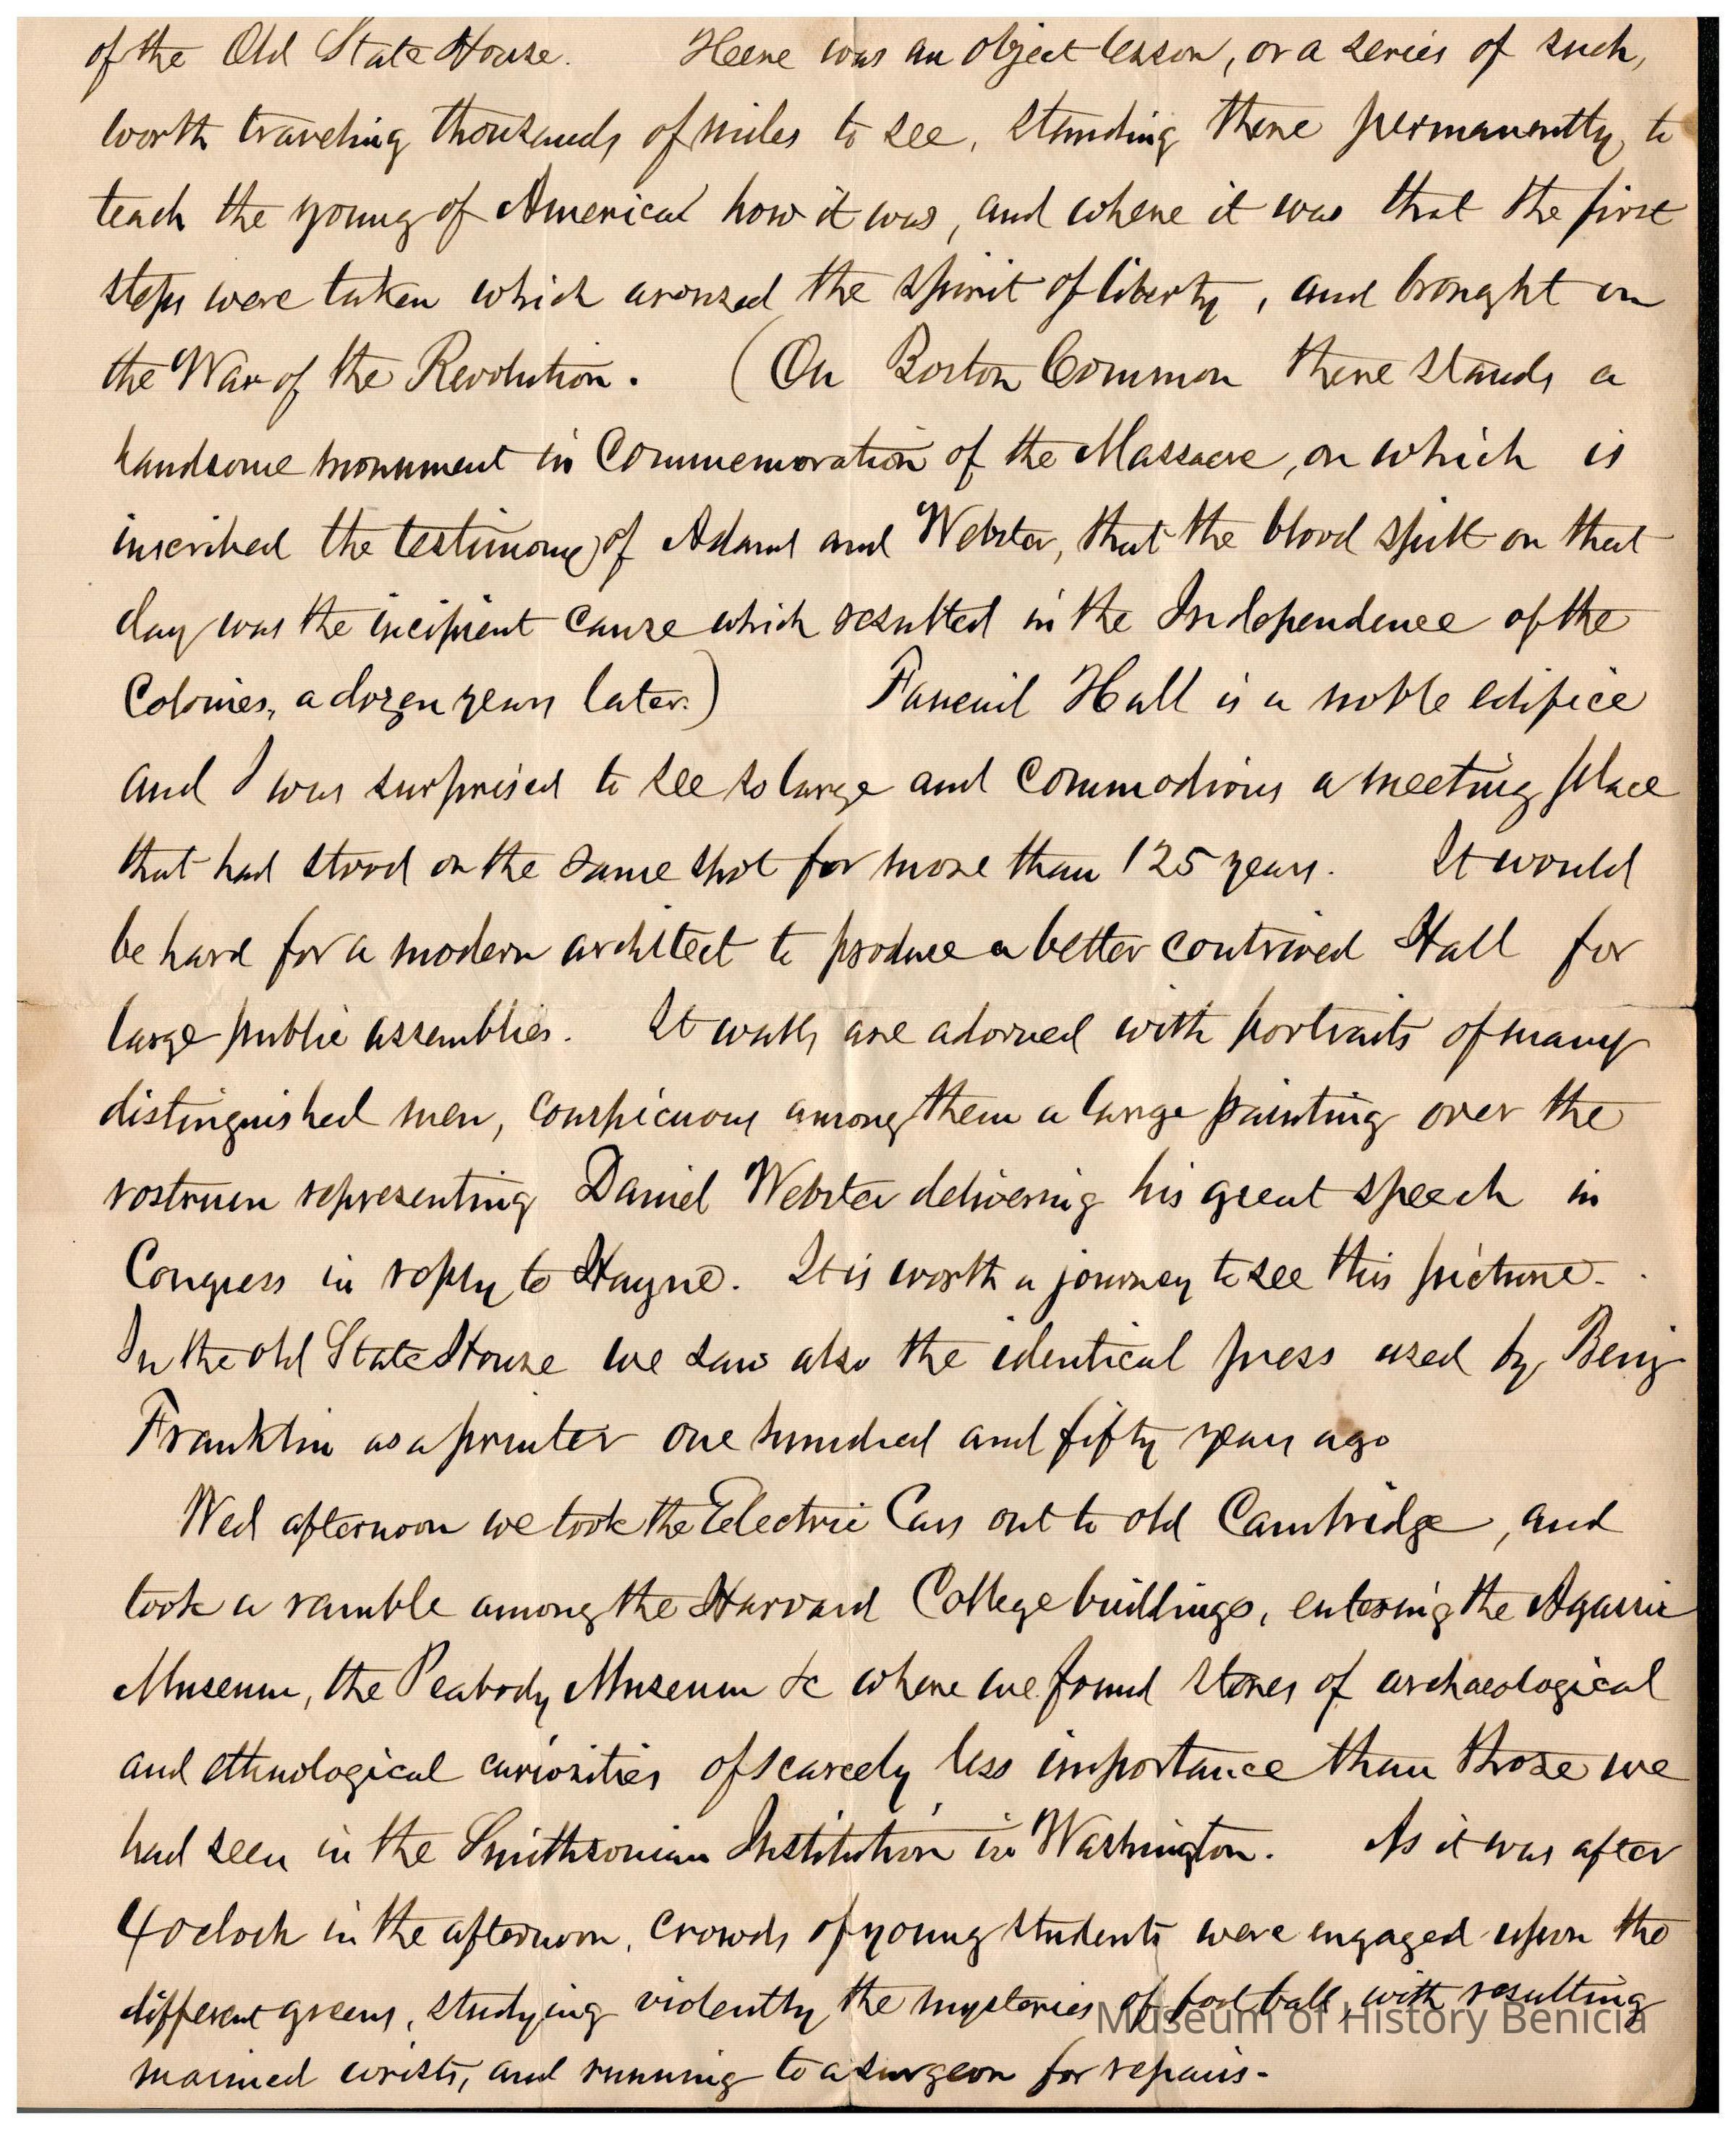 of the Old State House. Heere was an object lesson, or a series of such,
worth traveling thousands of miles to see, standing there permanently, to
teach the young of America how it was, and where it was that the first
steps were taken which arouzed the spirit of liberty, and brought on
the War of the Revolution. (On Boston Common there stands a
handsome monument in Commemoration of the Massacre, on which is
inscribed the testimony of Adams and Webster, that the blood spilt on that
day was the incipient cause which resulted in the Independence of the
Colonies, a dozen years later.) Faneuil Hall is a noble edifice
and I was surprised to see so large and commodious a meeting place
that had stood on the same spot for more than 125 years. It would
be hard for a modern architect to produce a better contrived Hall for
large public assemblies. It walls are adorned with portraits of many
distinguished men, conspicuous among them a large painting over the
rostrum representing Daniel Webster delivering his great speech in
Congress in reply to Hayne. It is worth a journey to see this picture.
In the old State House we saw also the identical press used by Benj
Franklin as a printer one hundred and fifty years ago
Wed afternoon we took the Electric Cars out to old Cambridge, and
took a ramble among the Harvard College buildings, entering the Agassiz
Museum, the Peabody Museum &c where we found stores of archaeological
and ethnological curiosities of scarcely less importance than those we
had seen in the Smithsonian Institution in Washington. As it was after
4 oclock in the afternoon, crowds of young students were engaged upon the
different greens, studying violently the mysteries of foot ball, with resulting
maimed wrists, and running to a surgeon for repairs.
Museum of History Benicia